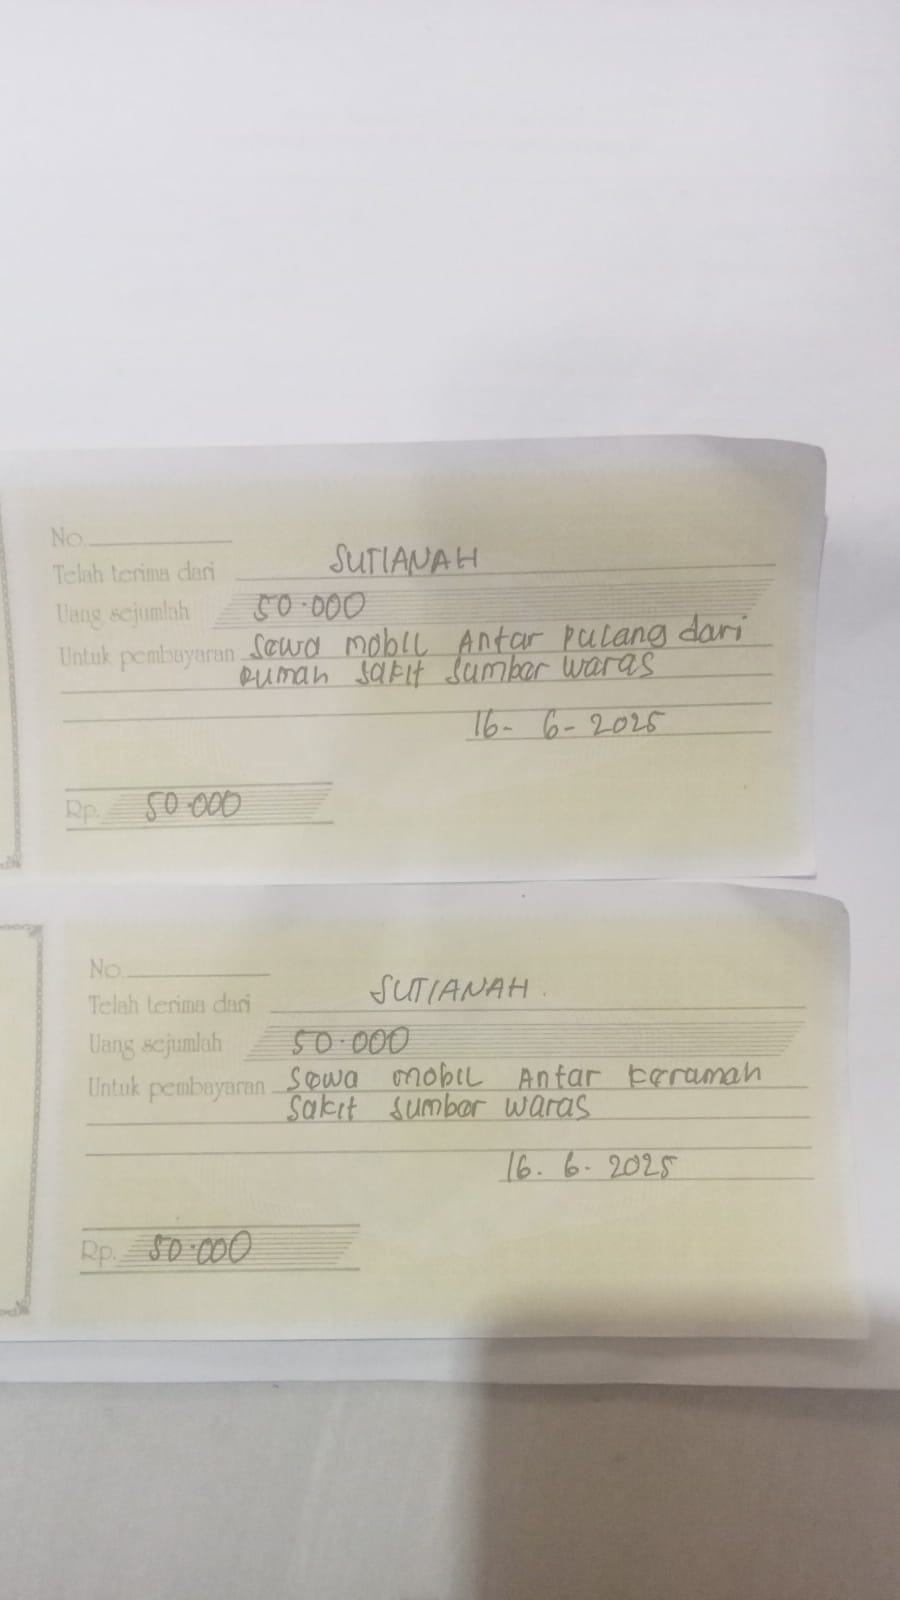 No.
Telah terima dari SUTIANAH
Uang sejumlah 50.000
Untuk pembayaran Sewa mobil Antar pulang dari
Rumah sakit sumber waras
16- 6-2025
Rp. 50.000
No.
Telah terima dari SUTIANAH.
Uang sejumlah 50.000
Untuk pembayaran Sewa mobil Antar keramah
sakit sumber waras
16. 6. 2025
Rp. 50.000